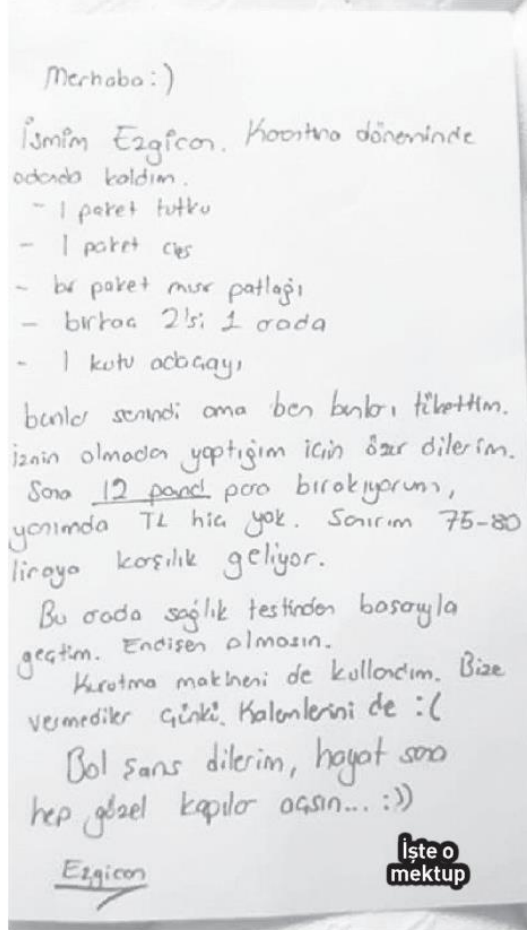 Merhaba :)
İsmim Ezgican. Karantina döneminde
odanda kaldım.
- 1 paket tutku
- 1 paket cips
- bir paket mısır patlağı
- birkaç 2'si 1 arada
- 1 kutu adaçayı
bunlar senindi ama ben bunları tükettim.
iznin olmadan yaptığım için özür dilerim.
Sana 12 pand para bırakıyorum,
yanımda TL hiç yok. Sanırım 75-80
liraya karşılık geliyor.
Bu arada sağlık testinden başarıyla
geçtim. Endişen olmasın.
Kurutma makineni de kullandım. Bize
vermediler çünkü. Kalemlerini de :(
Bol şans dilerim, hayat sana
hep güzel kapılar açsın... :))
Ezgican
İşte o
mektup